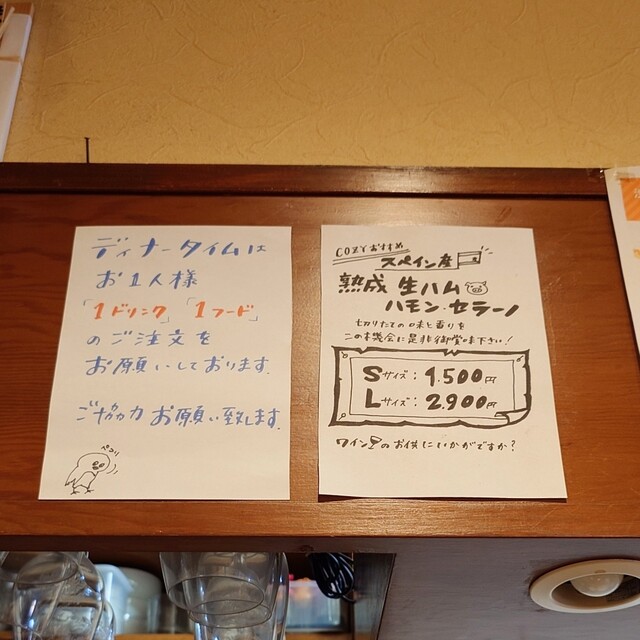 ディナータイムは
お1人様
「1ドリンク」「1フード」
のご注文を
お願いしております。
ご協力お願い致します。
ペコリ
COZYおすすめ
スペイン産
熟成 生ハム
ハモン・セラーノ
切りたての味と香りを
この機会に是非御賞味下さい!
Sサイズ: 1.500円
Lサイズ: 2.900円
ワインのお供にいかがですか?